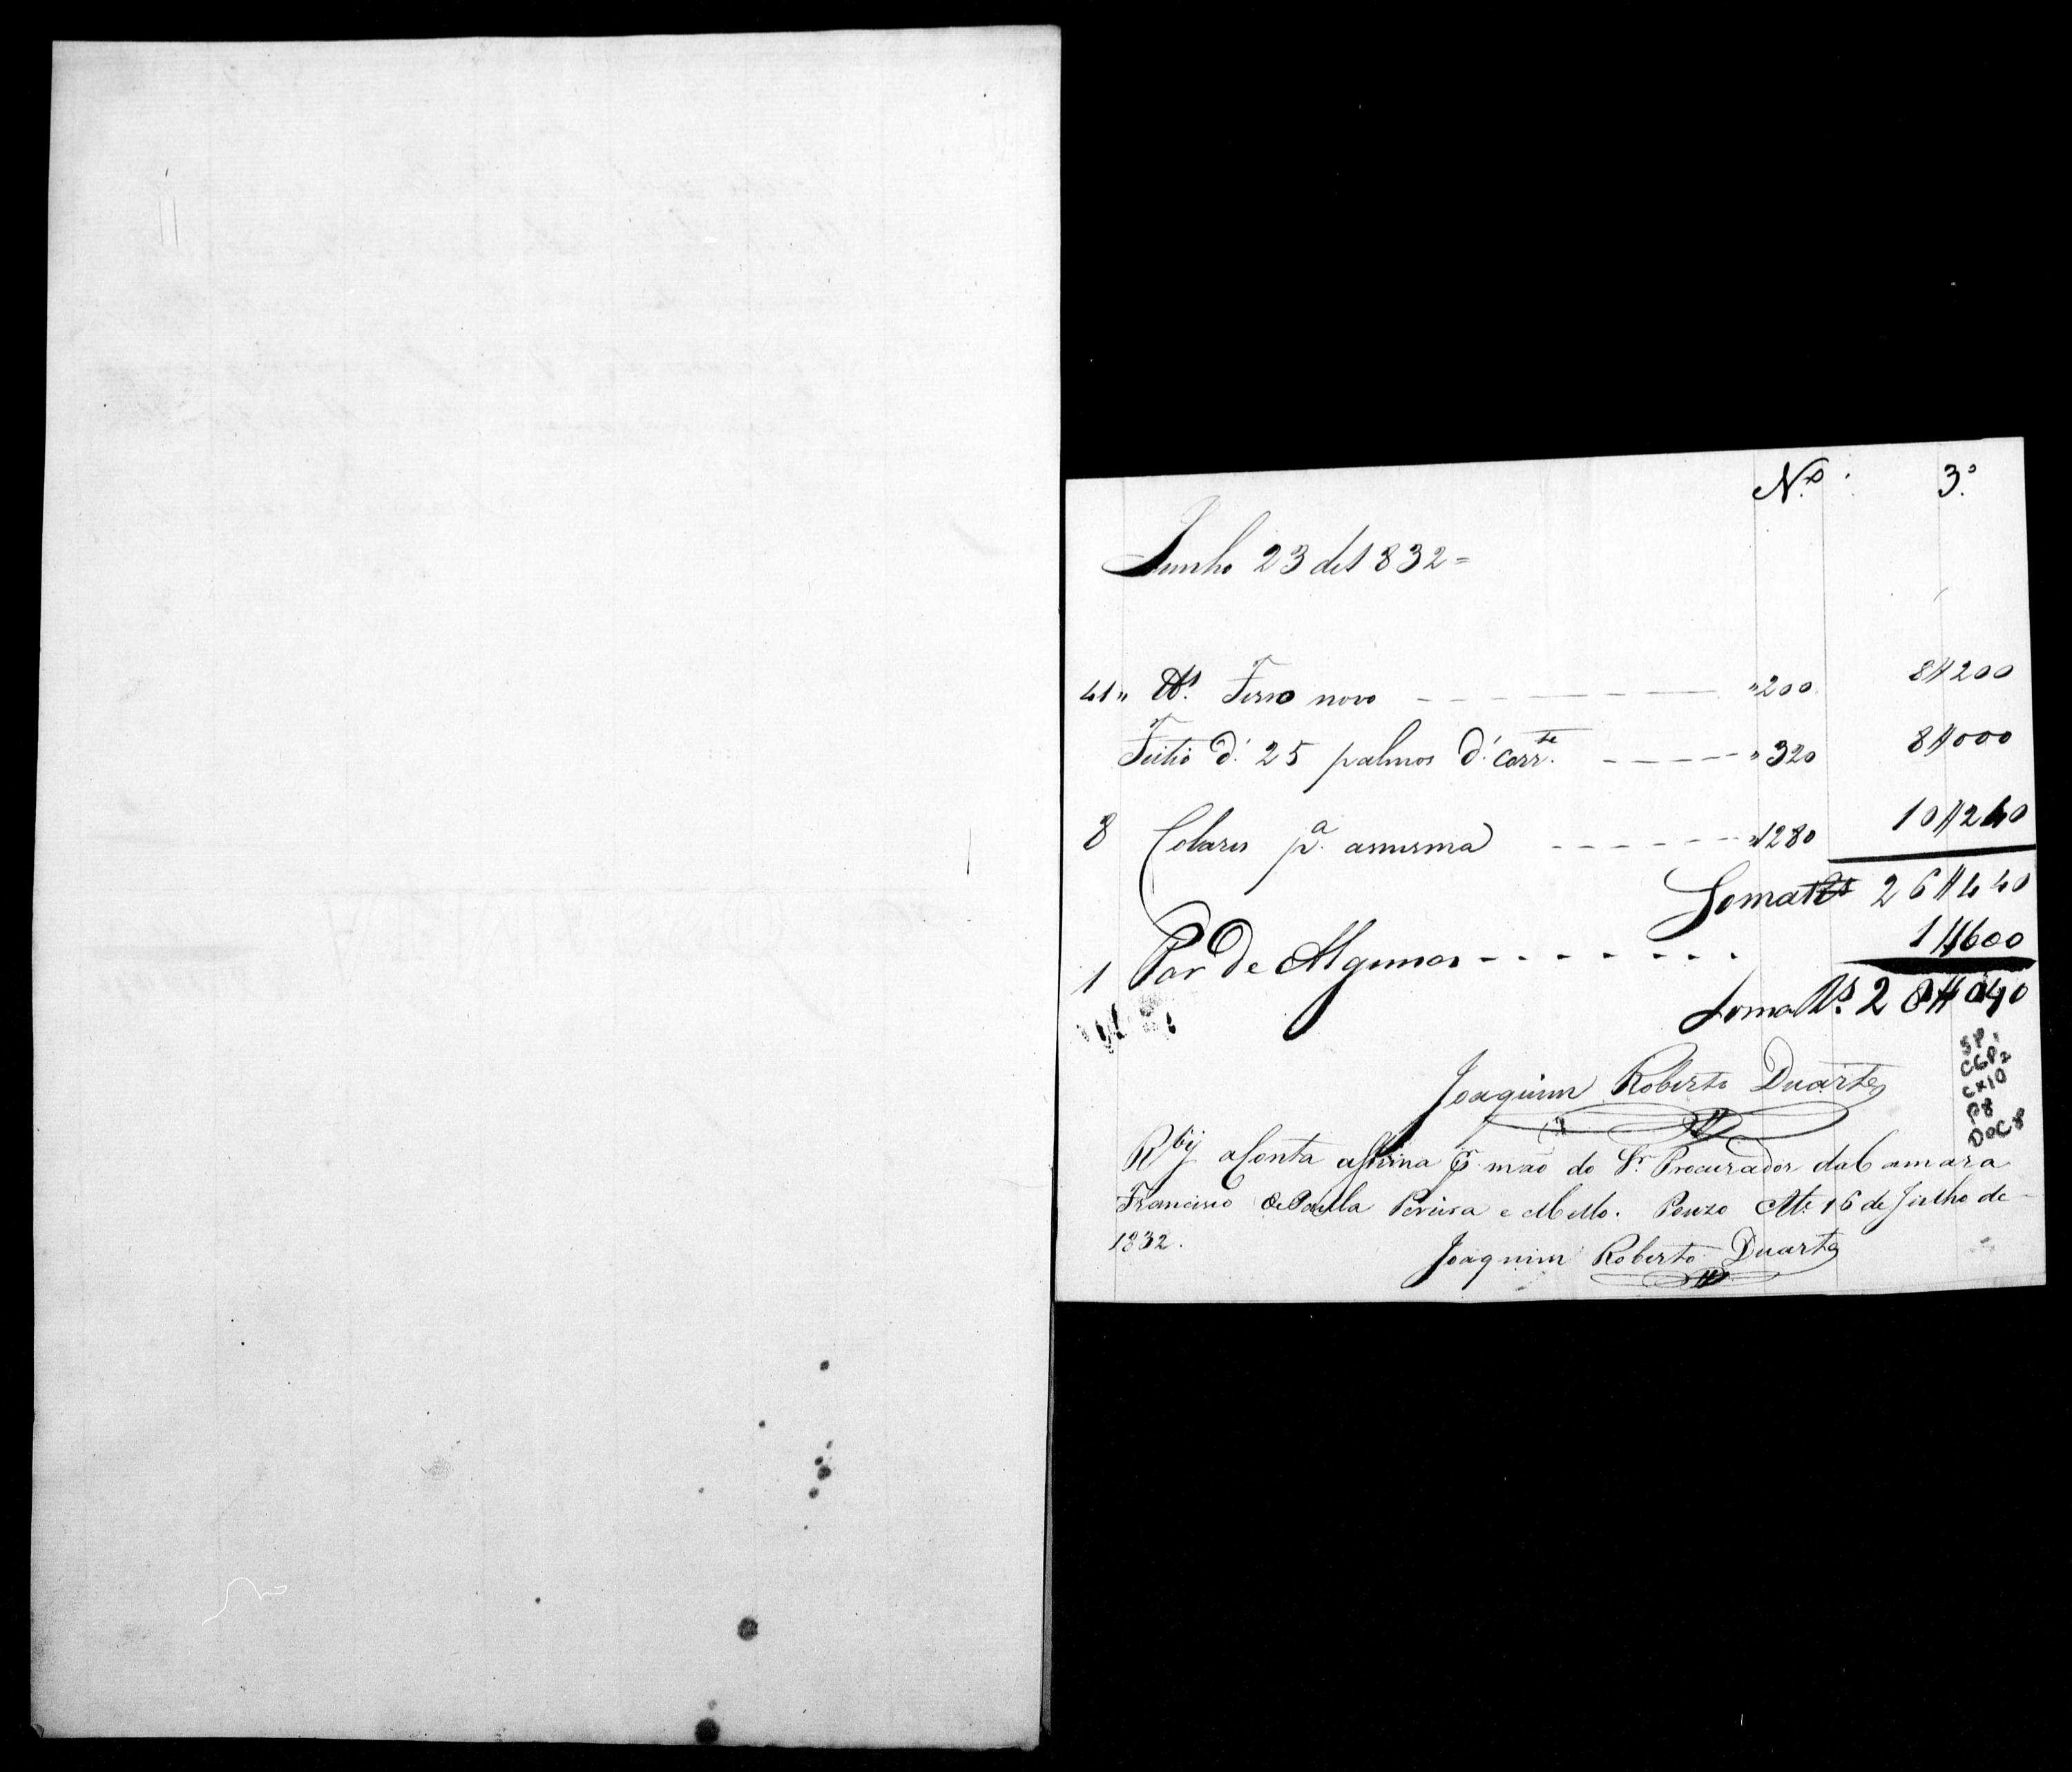 N.º 3.º
Junho 23 de 1832=
41" ℔s. Ferro novo — — — — — "200 8$200
Feitio d'. 25 palmos d'. Corr.te — — — — "320 8$000
8 Colares p.a amesma — — — — "1280 10$240
Soma Rs 26$440
1 Par de Algemas - - - - - - - 1$600
Soma Rs. 28$040
Joaquim Roberto Duarte
SP.
CGP2
CX10
P8
DOC8
Rby aConta aSima mão do Sr. Procurador daCamara
Francisco dePaulla Pereira e Mello. Pouzo Ale 16 de Julho de
1832.
Joaquim Roberto Duarte